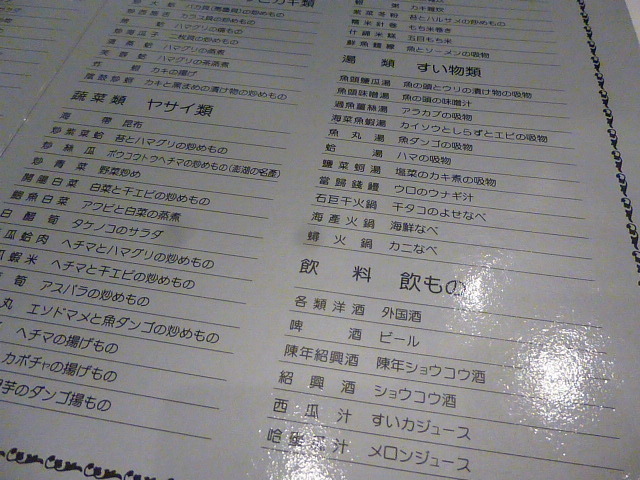 カキ類
バカ貝(馬鹿貝)の炒めもの
カラス貝の炒めもの
ハマグリの傷もの
二枚貝の炒めもの
ハマグリの蒸煮
ハマグリの茶蒸煮
カキの揚げ
蔭豉炒蚵 カキと黒まめの漬け物の炒めもの
蔬菜類 ヤサイ類
海帶 昆布
炒紫菜蛤 苔とハマグリの炒めもの
炒絲瓜 ボウコウトウヘチマの炒めもの(澎湖の名産)
炒青菜 野菜炒め
開陽白菜 白菜と干エビの炒めもの
鮑魚白菜 アワビと白菜の蒸煮
白醋筍 タケノコのサラダ
瓜蛤肉 ヘチマとハマグリの炒めもの
瓜蝦米 ヘチマと干エビの炒めもの
筍 アスパラの炒めもの
丸 エンドマメと魚ダンゴの炒めもの
ヘチマの揚げもの
カボチャの揚げもの
芋のダンゴ揚もの
カキそうめん
紫菜冬粉 苔とハルサメの炒めもの
糯米計巻 もち米巻き
什錦米糕 五目もち米
鮮魚麵線 魚とソーメンの吸物
湯類 すい物類
魚頭鹽瓜湯 魚の頭とウリの漬け物の吸物
魚頭味噌湯 魚の頭の味噌汁
過魚薑絲湯 アラカブの吸物
海菜魚蝦湯 カイソウとしらずとエビの吸物
魚丸湯 魚ダンゴの吸物
蛤湯 ハマの吸物
鹽菜蚵湯 塩菜のカキ煮の吸物
當歸錢鰻 ウロのウナギ汁
石巨干火鍋 干タコのよせなべ
海產火鍋 海鮮なべ
蟳火鍋 カニなべ
飲料 飲もの
各類洋酒 外国酒
啤酒 ビール
陳年紹興酒 陳年ショウコウ酒
紹興酒 ショウコウ酒
西瓜汁 すいカジュース
哈蜜瓜汁 メロンジュース